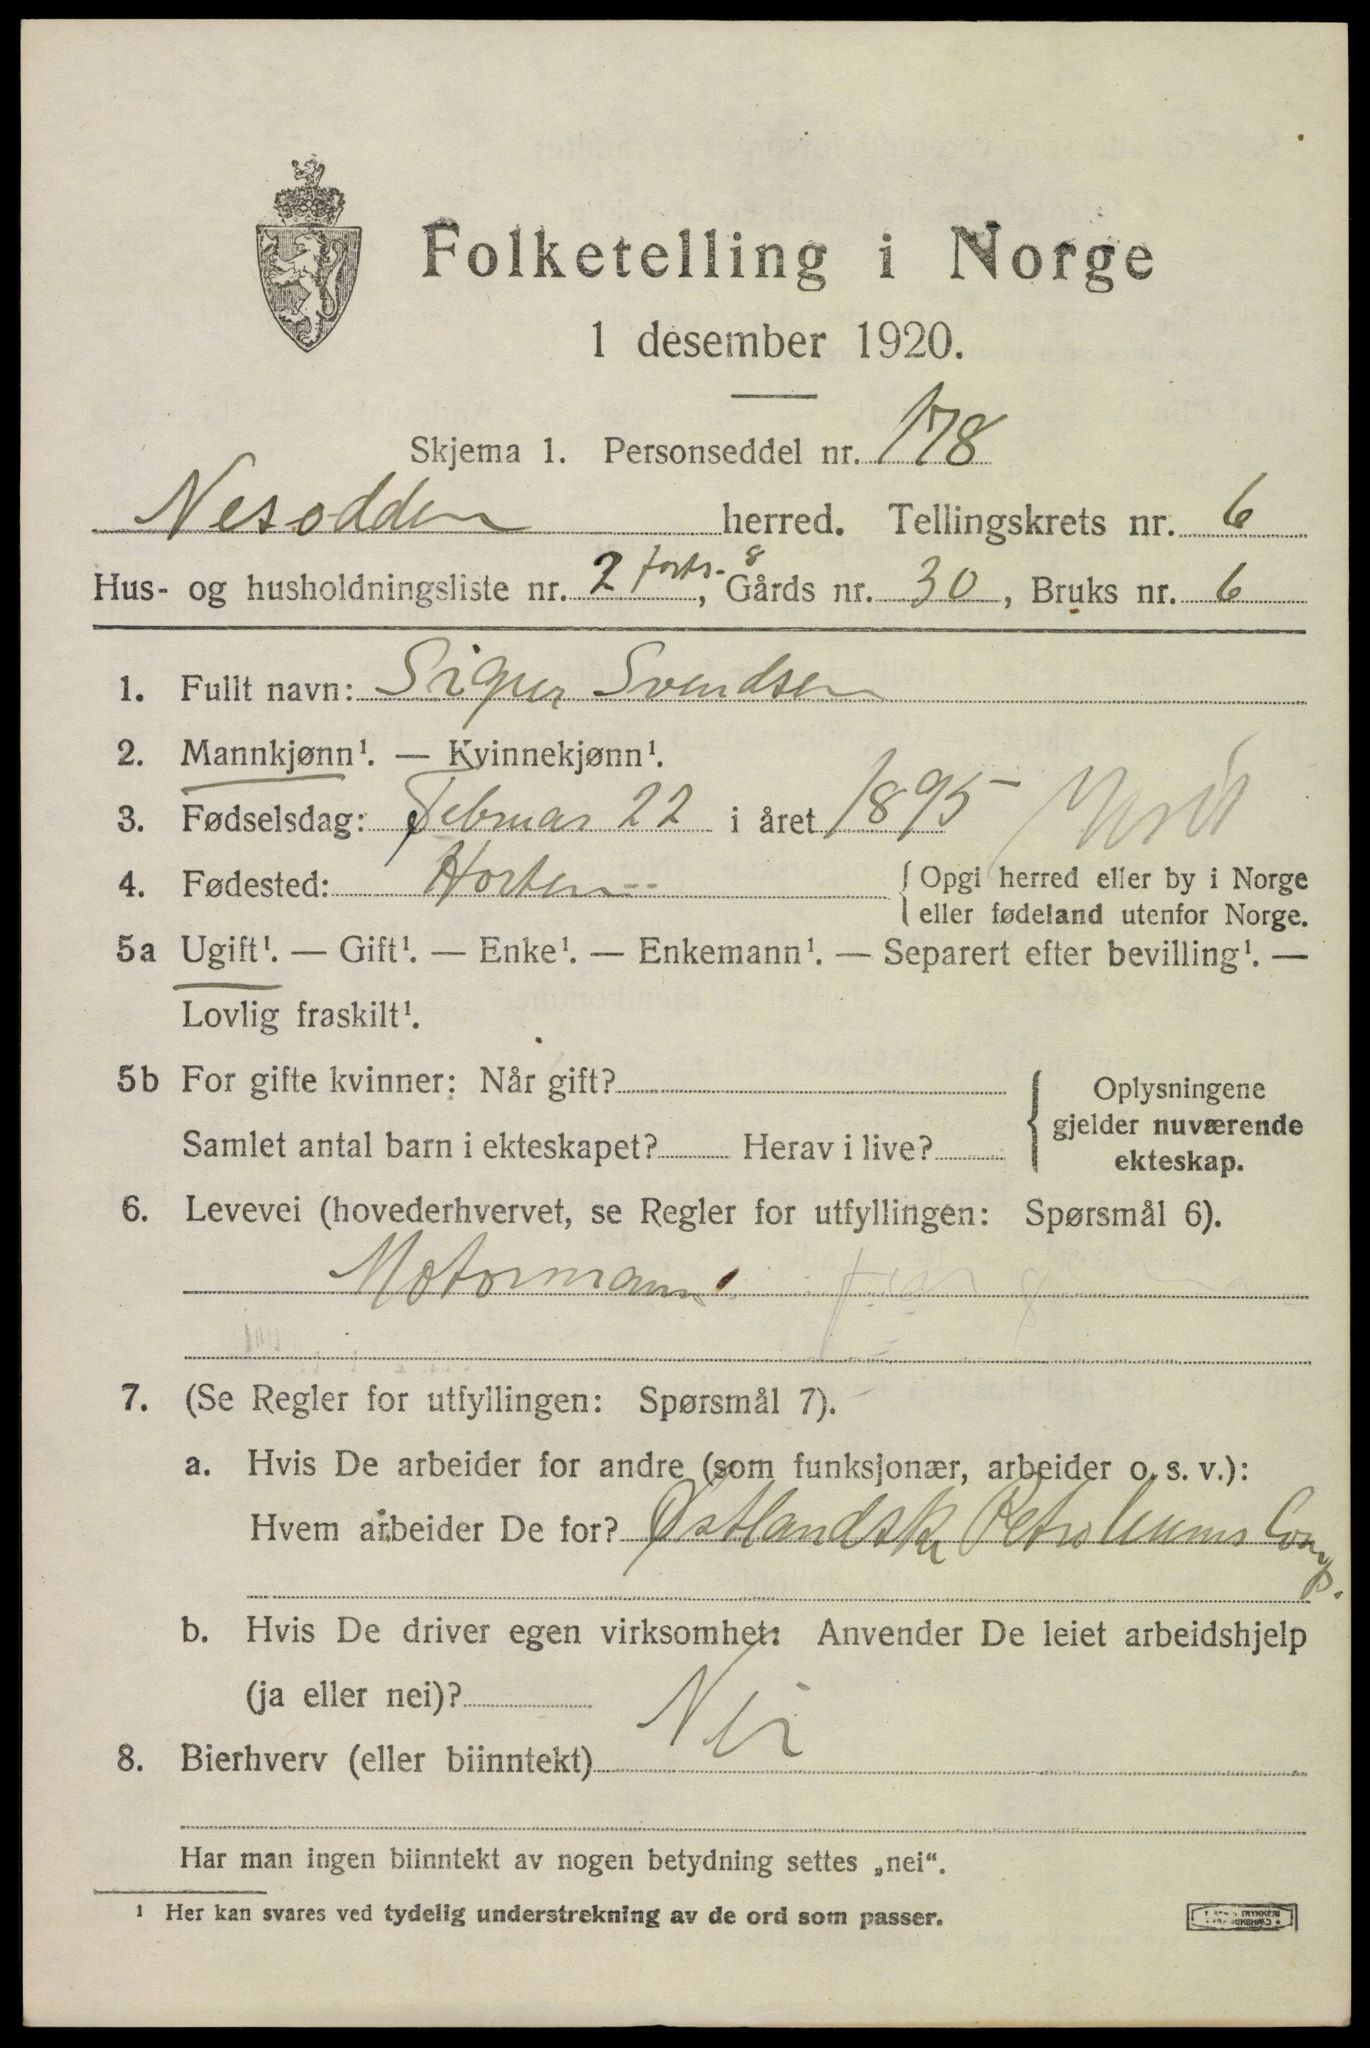 Folketelling i Norge
1 desember 1920.
Skjema 1. Personseddel nr. 178
Nesodden herred. Tellingskrets nr. 6
Hus- og husholdningsliste nr. 2 forts. 8, Gårds nr. 30, Bruks nr. 6
1. Fullt navn: Sigur Svendsen
2. Mannkjønn¹. — Kvinnekjønn¹.
3. Fødselsdag: Februar 22 i året 1895
4. Fødested: Horten { Opgi herred eller by i Norge
eller fødeland utenfor Norge.
5a Ugift¹. — Gift¹. — Enke¹. — Enkemann¹. — Separert efter bevilling¹. —
Lovlig fraskilt¹.
5b For gifte kvinner: Når gift?
Samlet antal barn i ekteskapet? Herav i live?
Oplysningene
gjelder nuværende
ekteskap.
6. Levevei (hovederhvervet, se Regler for utfyllingen: Spørsmål 6).
Motormann
7. (Se Regler for utfyllingen: Spørsmål 7).
a. Hvis De arbeider for andre (som funksjonær, arbeider o. s. v.):
Hvem arbeider De for? Østlandske Petroleums Comp.
b. Hvis De driver egen virksomhet: Anvender De leiet arbeidshjelp
(ja eller nei)?
8. Bierhverv (eller biinntekt) Nei
Har man ingen biinntekt av nogen betydning settes „nei“.
¹ Her kan svares ved tydelig understrekning av de ord som passer.